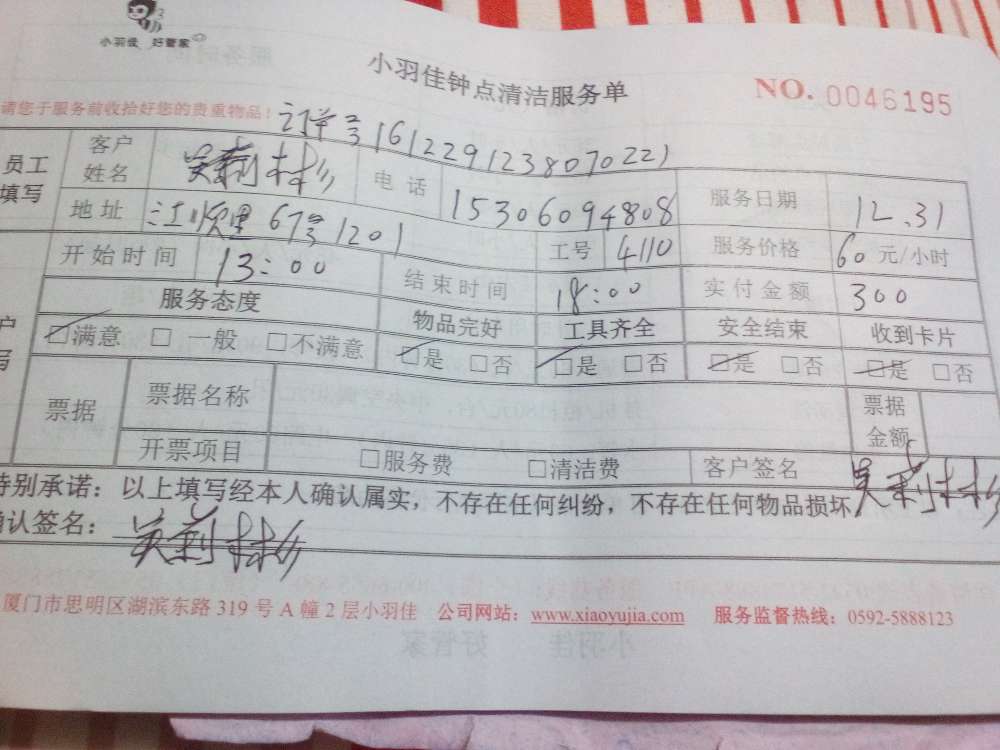 小羽佳 好管家
小羽佳钟点清洁服务单
NO. 0046195
请您于服务前收拾好您的贵重物品！ 订单号1612291238070221
员工填写 客户姓名 吴莉彬 电话 15306094808 服务日期 12.31
地址 江顺里67号1201 工号 4110 服务价格 60元/小时
开始时间 13:00 结束时间 18:00 实付金额 300
服务态度 物品完好 工具齐全 安全结束 收到卡片
☑满意 □一般 □不满意 ☑是 □否 ☑是 □否 ☑是 □否 ☑是 □否
票据 票据名称 票据金额
开票项目 □服务费 □清洁费 客户签名 吴莉彬
特别承诺：以上填写经本人确认属实，不存在任何纠纷，不存在任何物品损坏
确认签名： 吴莉彬
厦门市思明区湖滨东路 319 号 A 幢 2 层小羽佳 公司网站：www.xiaoyujia.com 服务监督热线：0592-5888123